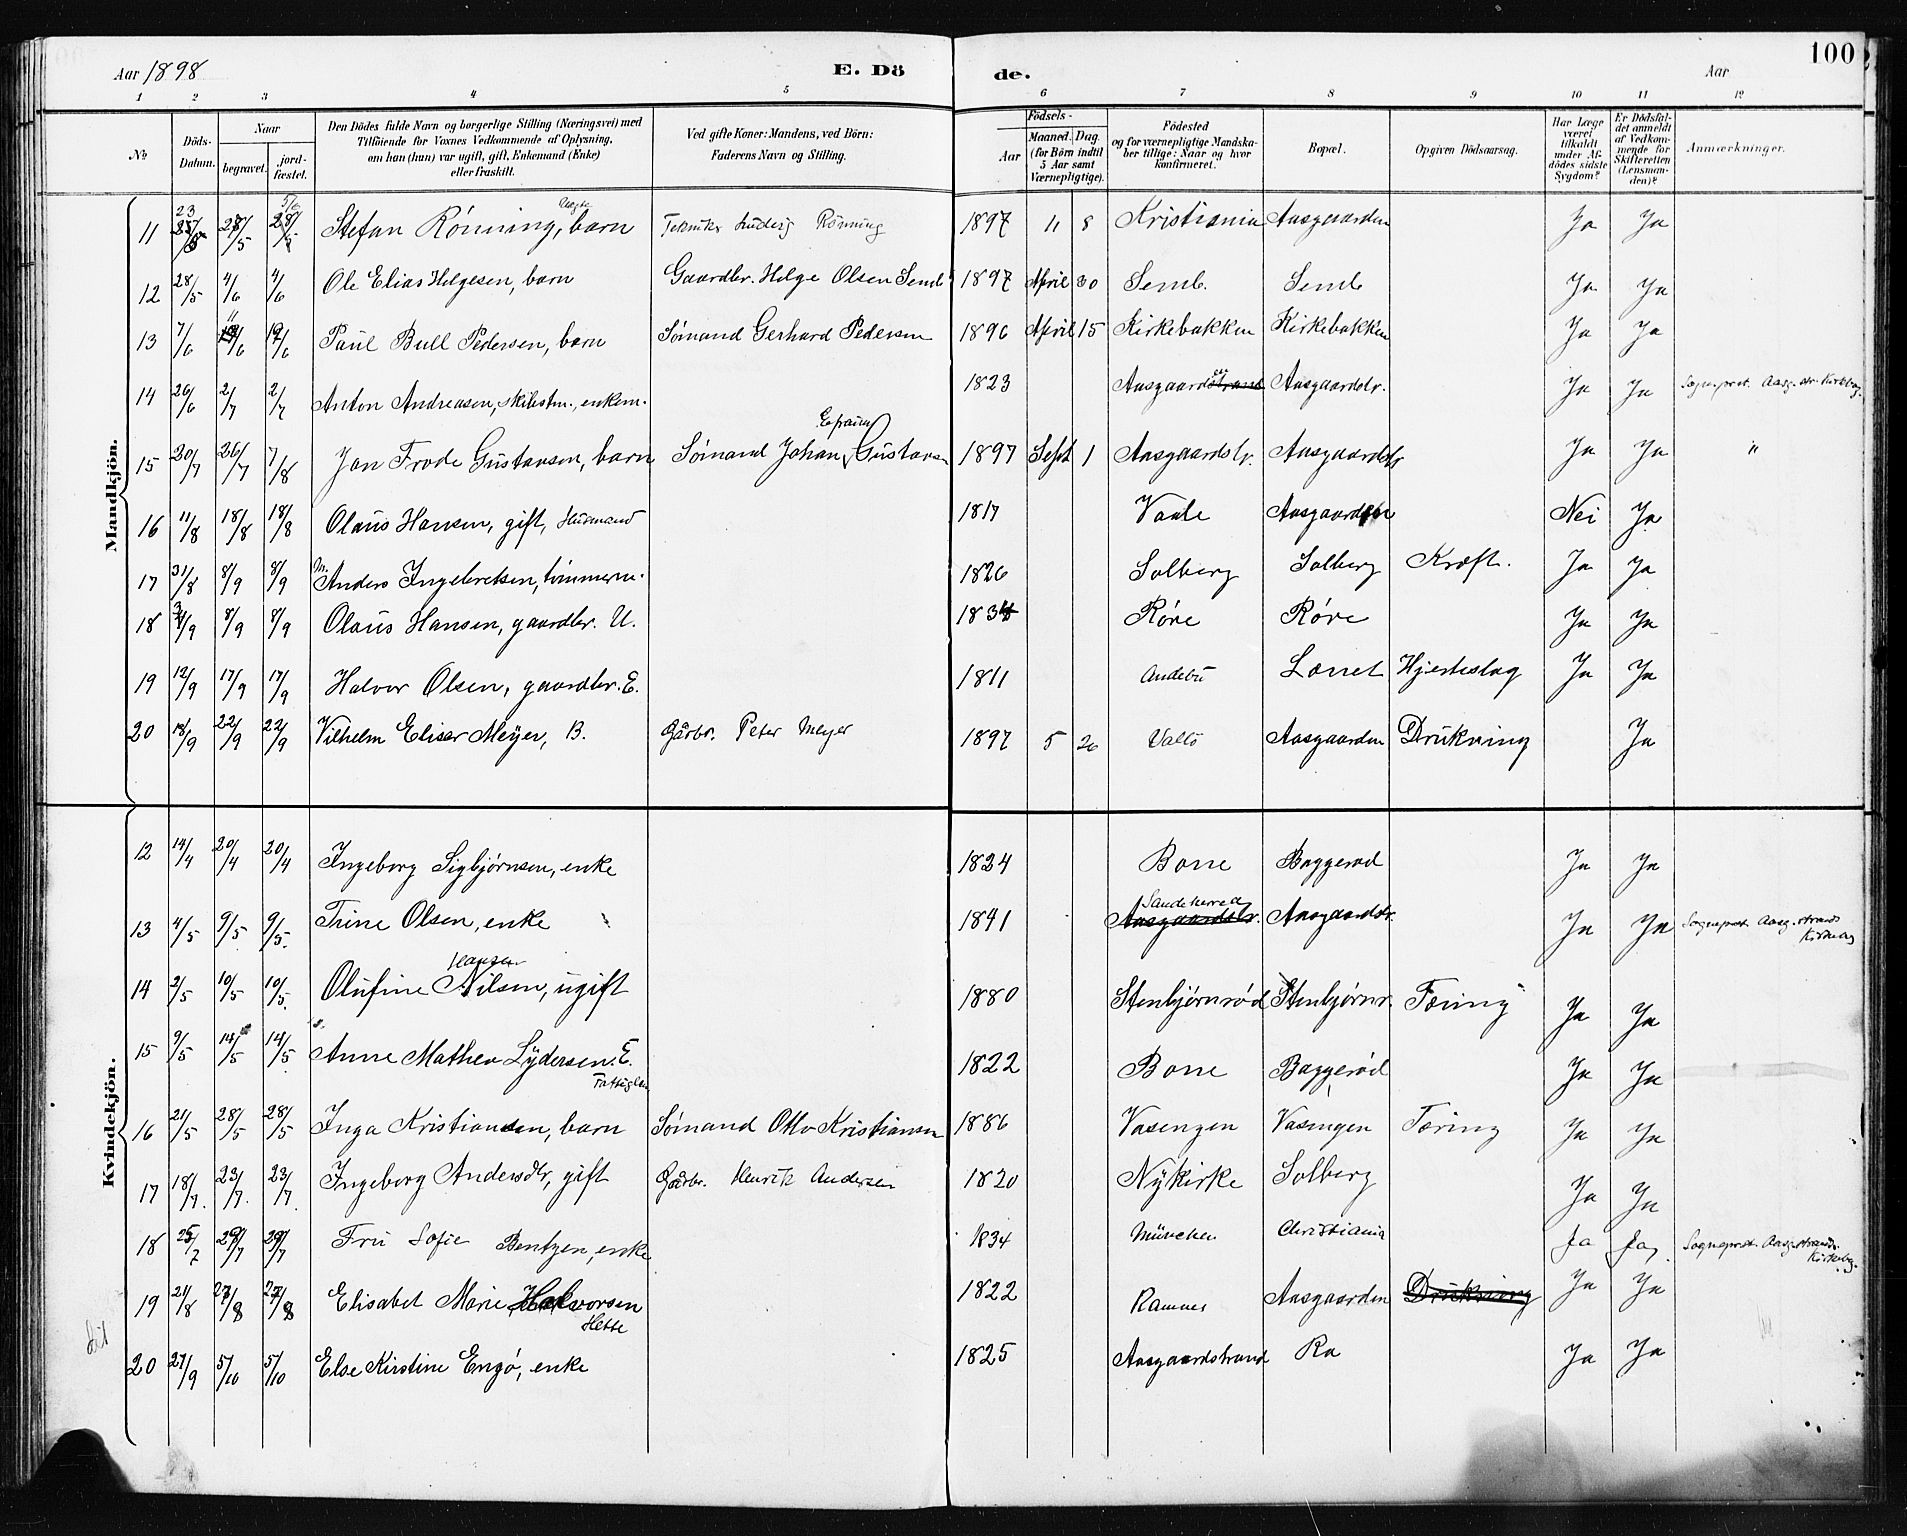 Aar 1898 E. Dö de. Aar 100
1 2 3 4 5 6 7 8 9 10 11 12
№ Döds-Datum. Naar begravet. jord-fæstet. Den Dödes fulde Navn og borgerlige Stilling (Næringsvei) med Tilföiende for Voxnes Vedkommende af Oplysning, om han (hun) var ugift, gift, Enkemand (Enke) eller fraskilt. Ved gifte Koner: Mandens, ved Börn: Faderens Navn og Stilling. Födsels- Aar Maaned. Dag. (for Börn indtil 5 Aar samt Værnepligtige). Födested og for værnepligtige Mandskaber tillige: Naar og hvor konfirmeret. Bopæl. Opgiven Dödsaarsag. Har Læge været tilkaldt under Afdödes sidste Sygdom? Er Dödsfaldet anmeldt af Vedkommende for Skifteretten (Lensmanden)? Anmærkninger.
Mandkjön.
11 23/5 5/6 Stefan Rönning, barn Tekniker Ludvig Rönning 1897 11 8 Kristiania Aasgaarden Ja Ja
12 28/5 4/6 4/6 Ole Elias Helgesen, barn Gaardbr. Helge Olsen Semb 1897 April 30 Semb. Semb Ja Ja
13 7/6 12/6 Paul Bull Pedersen, barn Sömand Gerhard Pedersen 1896 April 15 Kirkebakken Kirkebakken Ja Ja
14 26/6 2/7 2/7 Anton Andreasen, skibstm., enkem. 1823 Aasgaardstrand Aasgaardstr. Ja Ja Sogn. præst. Aasg. str. Kirkebog.
15 20/7 26/7 7/8 Jan Frode Gustavsen, barn Sömand Johan Efraim Gustavsen 1897 Sept 1 Aasgaardstr. Aasgaardstr Ja Ja "
16 11/8 18/8 18/8 Olaus Hansen, gift, Husmand 1817 Vaale Aasgaarden Nei Ja
17 31/8 8/9 8/9 Anders M. Ingebretsen, tömmerm. 1826 Solberg Solberg Kræft. Ja Ja
18 /9 8/9 8/9 Olaus Hansen, gaardbr. U. 183 Röre Röre Ja Ja
19 12/9 17/9 17/9 Halvor Olsen, gaardbr. E. 1811 Andebu Lönet Hjerteslag Ja Ja
20 18/9 22/9 22/9 Vilhelm Eliser Meyer, B. Gårbr. Peter Meyer 1897 5 26 Vallö Aasgaarden Drukning Ja
Kvindekjön.
12 14/4 20/4 20/4 Ingeborg Sigbjörnsen, enke 1824 Borre Baggeröd Ja Ja
13 4/5 9/5 9/5. Trine Olsen, enke 1841 Aasgaardstr. Sandeherred Aasgaardstr. Ja Ja Sognepræst. Aasg.strands Kirkebog
14 2/5 10/5 10/5. Olufine Hansen Nilsen, ugift 1880 Stenbjörnröd Stenbjörnr. Tæring Ja Ja
15 9/5 14/5 14/5. Anne Mathea Lydersen. E. Fattiglem 1822 Borre Baggeröd Ja Ja
16 21/5 28/5 28/5 Inga Kristiansen, barn Sömand Otto Kristiansen 1886 Vasengen Vasengen Tæring Ja Ja
17 18/7. 23/7. 23/7. Ingeborg Andersdtr, gift Gårbr. Henrik Andersen 1820 Nykirke Solberg Ja Ja
18 25/7 29/7 29/7 Fru Sofie Bentzen, enke 1834 München Christiania Ja Ja Sognepræst. Aasg.strands Kirkebog.
19 21/8 27/8 27/8 Elisabet Marie Halvorsen Hette 1822 Ramnes Aasgaarden Drukning Ja Ja
20 27/9 5/10 5/10 Else Kirstine Engö, enke 1825 Aasgaardstrand Ra Ja Ja